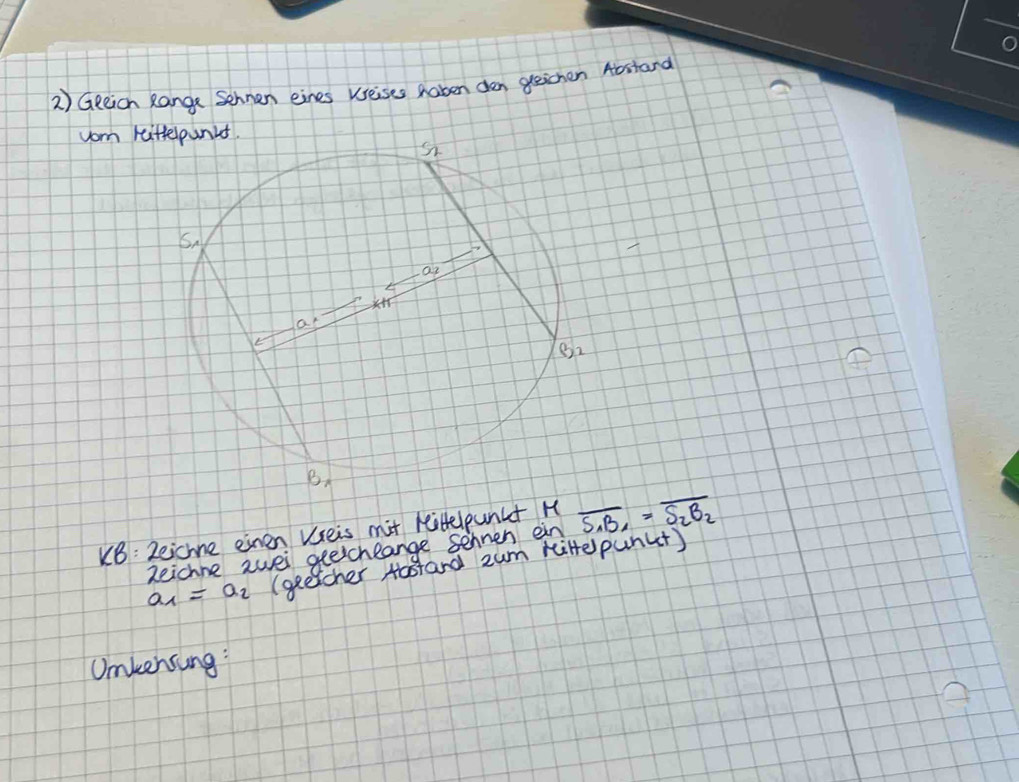 2) Gleich lange Sehnen eines Kreises haben den gleichen Abstand
vom Mittelpunkt.
S2
S1
a2
M
a1
B2
B1
KB: Zeichne einen Kreis mit Mittelpunkt M
Zeichne zwei gleichlange Sehnen ein S1B1 = S2B2
a1 = a2 (gleicher Abstand zum Mittelpunkt)
Umkehrung: